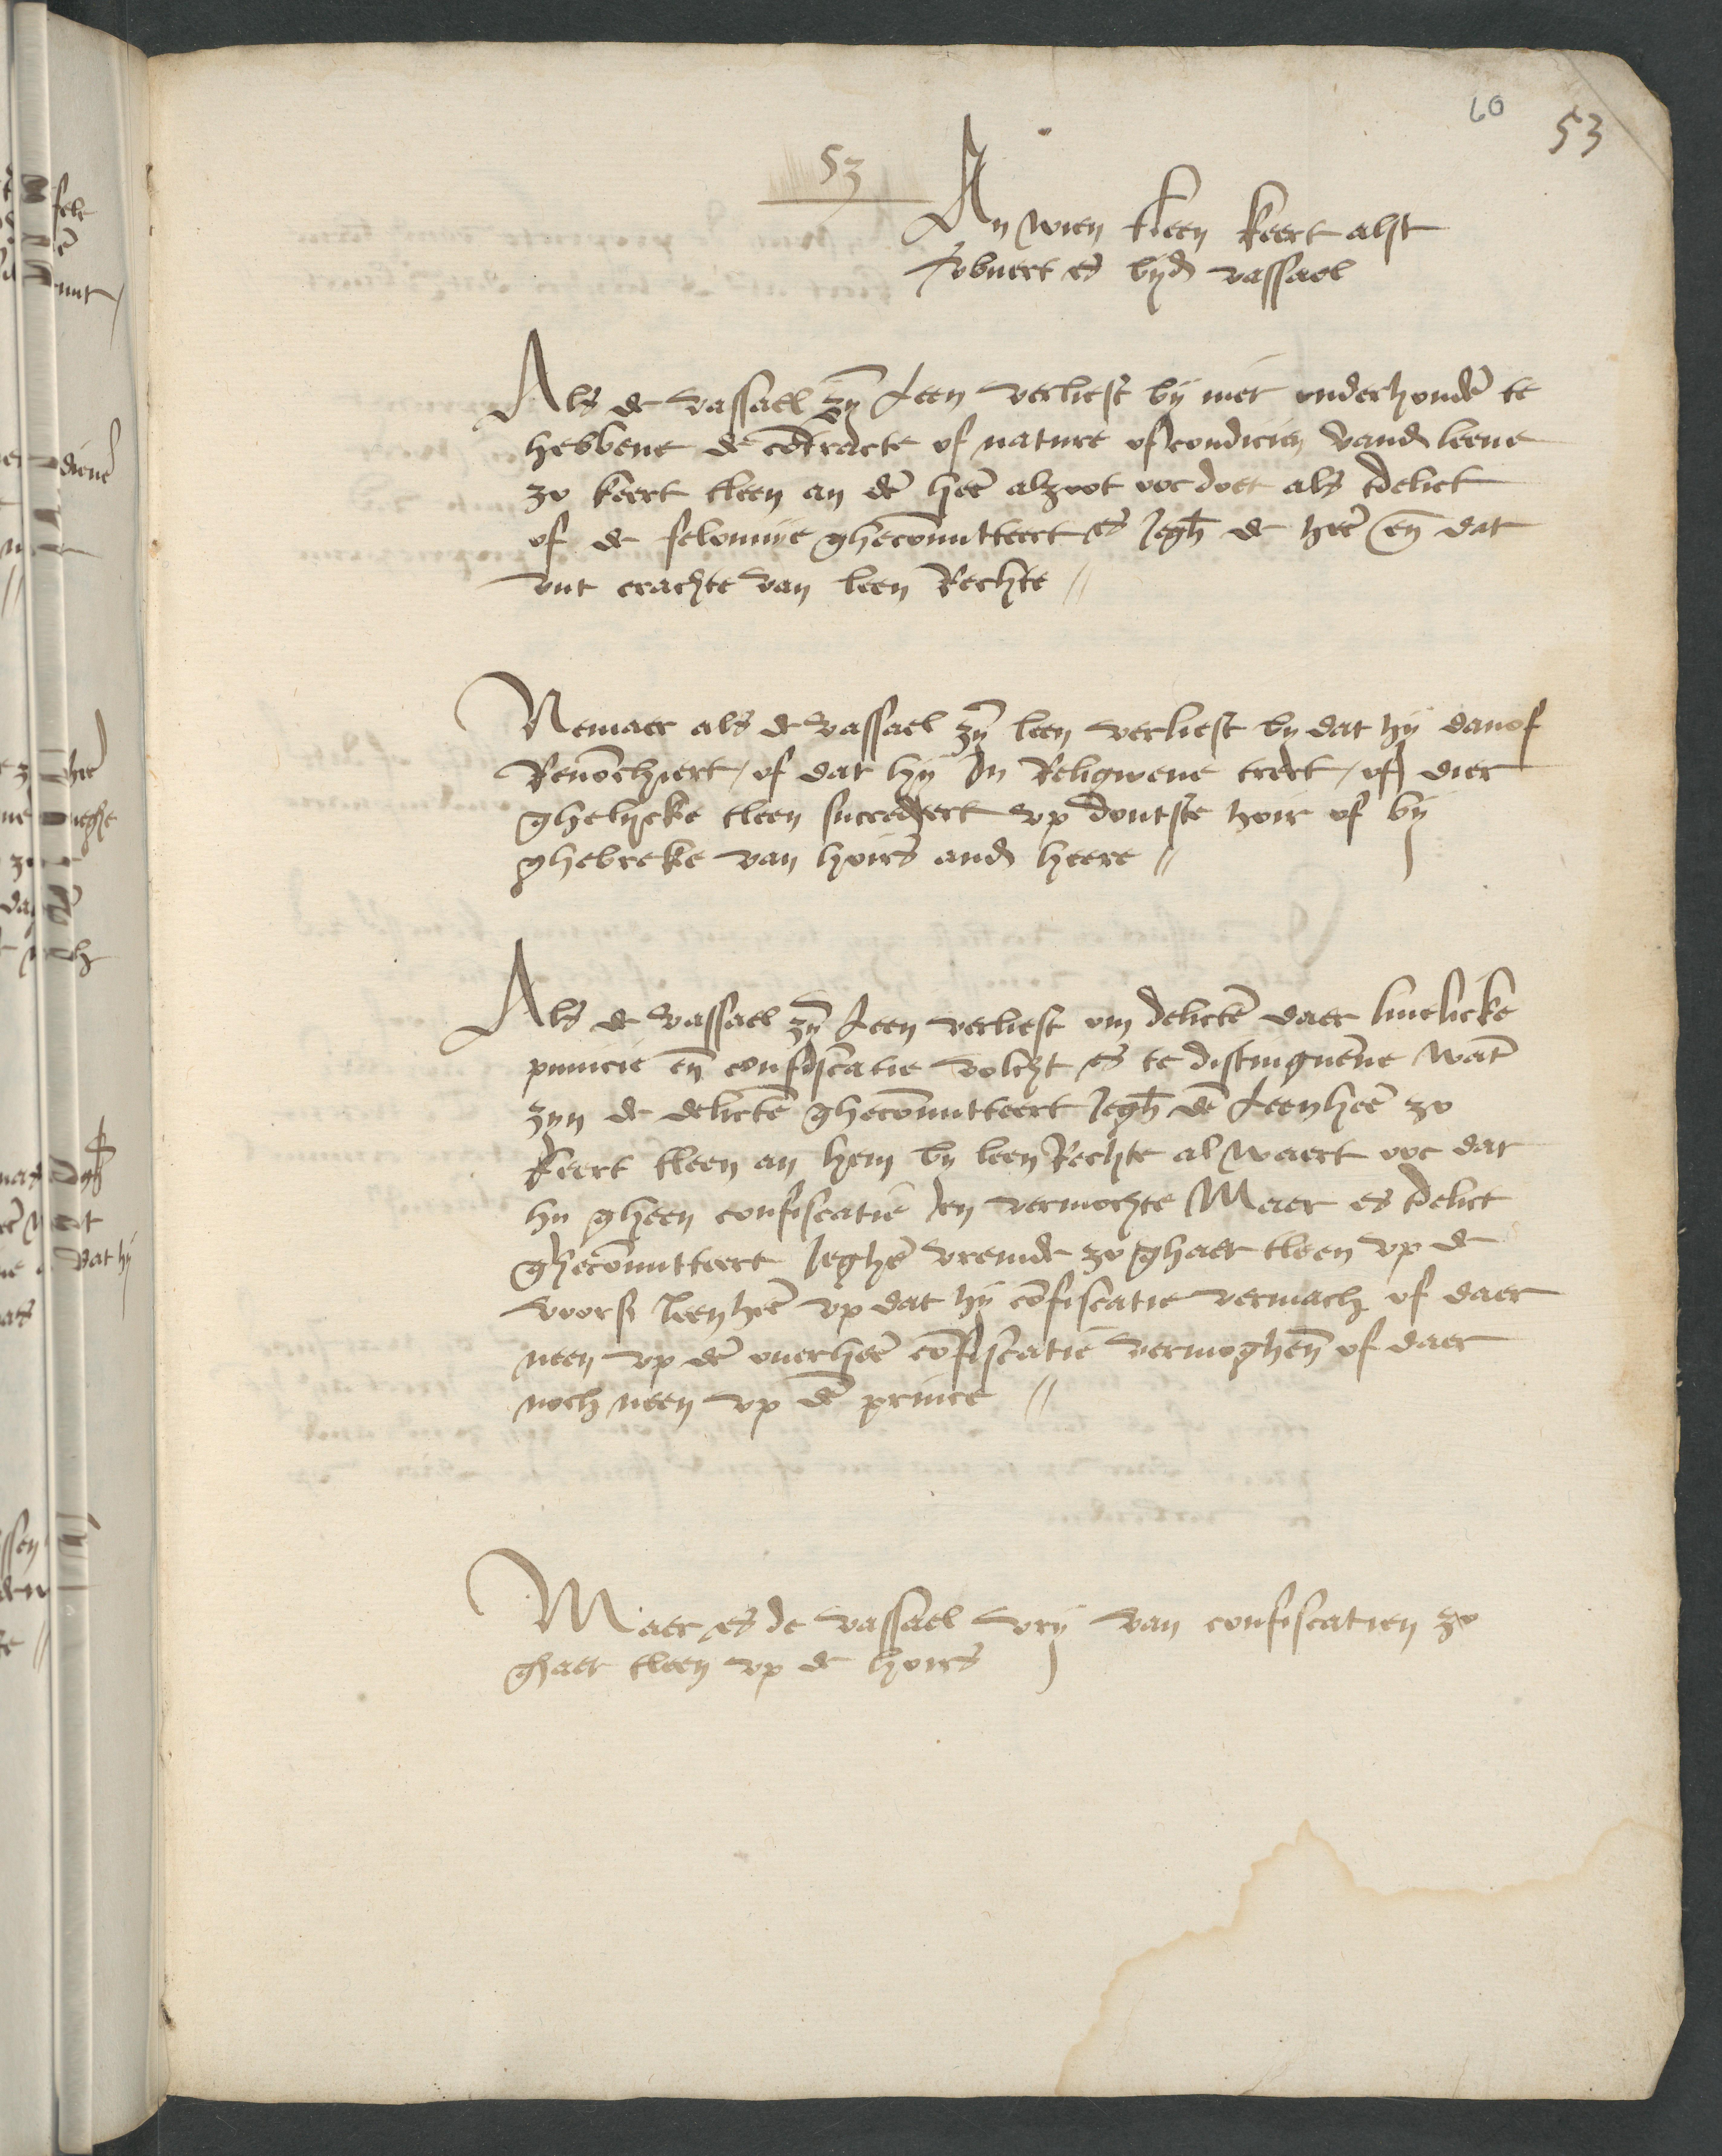 60 53
53
An wien tleen keert alst
verbuert es byd vassael
Als de vassael zyn leen verliest by niet onderhoudē te
hebbene de cōtracte of nature of condicien vand leene
zo keert tleen an dē heē alzoot ooc doet als tdelict
of de felonnije ghecōmitteert es Jegh de heē en dat
uut crachte van leen Rechte //
Nemaer als de vassael zyn leen verliest by dat hij danof
Renōchiert / of dat hij In Religioene trect / of dier
ghelycke tleen succedeert up doutste hoir of bij
ghebreke van hoirs and heere //
Als de vassael zyn leen verliest om delictē daer livelicke
punicie en confiscatie volcht es te distinguerene want
zyn de delictē ghecōmitteert Jegh dē leenheē zo
keert tleen an hem by leen Rechte al waert ooc dat
hy gheen confiscatie en vermochte Maer es tdelict
ghecōmitteert Jeghē vremde zo ghaet tleen up de
voors leenheē up dat hij cōfiscatie vermach of daer
neen up dē overheē cōfiscatie vermoghen of daer
noch neen up dē prince //
Maer es de vassael vrij van confiscatien zo
ghaet tleen up de hoirs